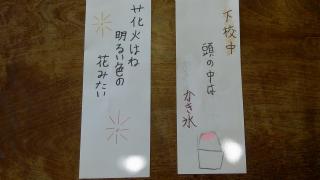 下校中
頭の中は
かき氷
花火はね
明るい色の
花みたい